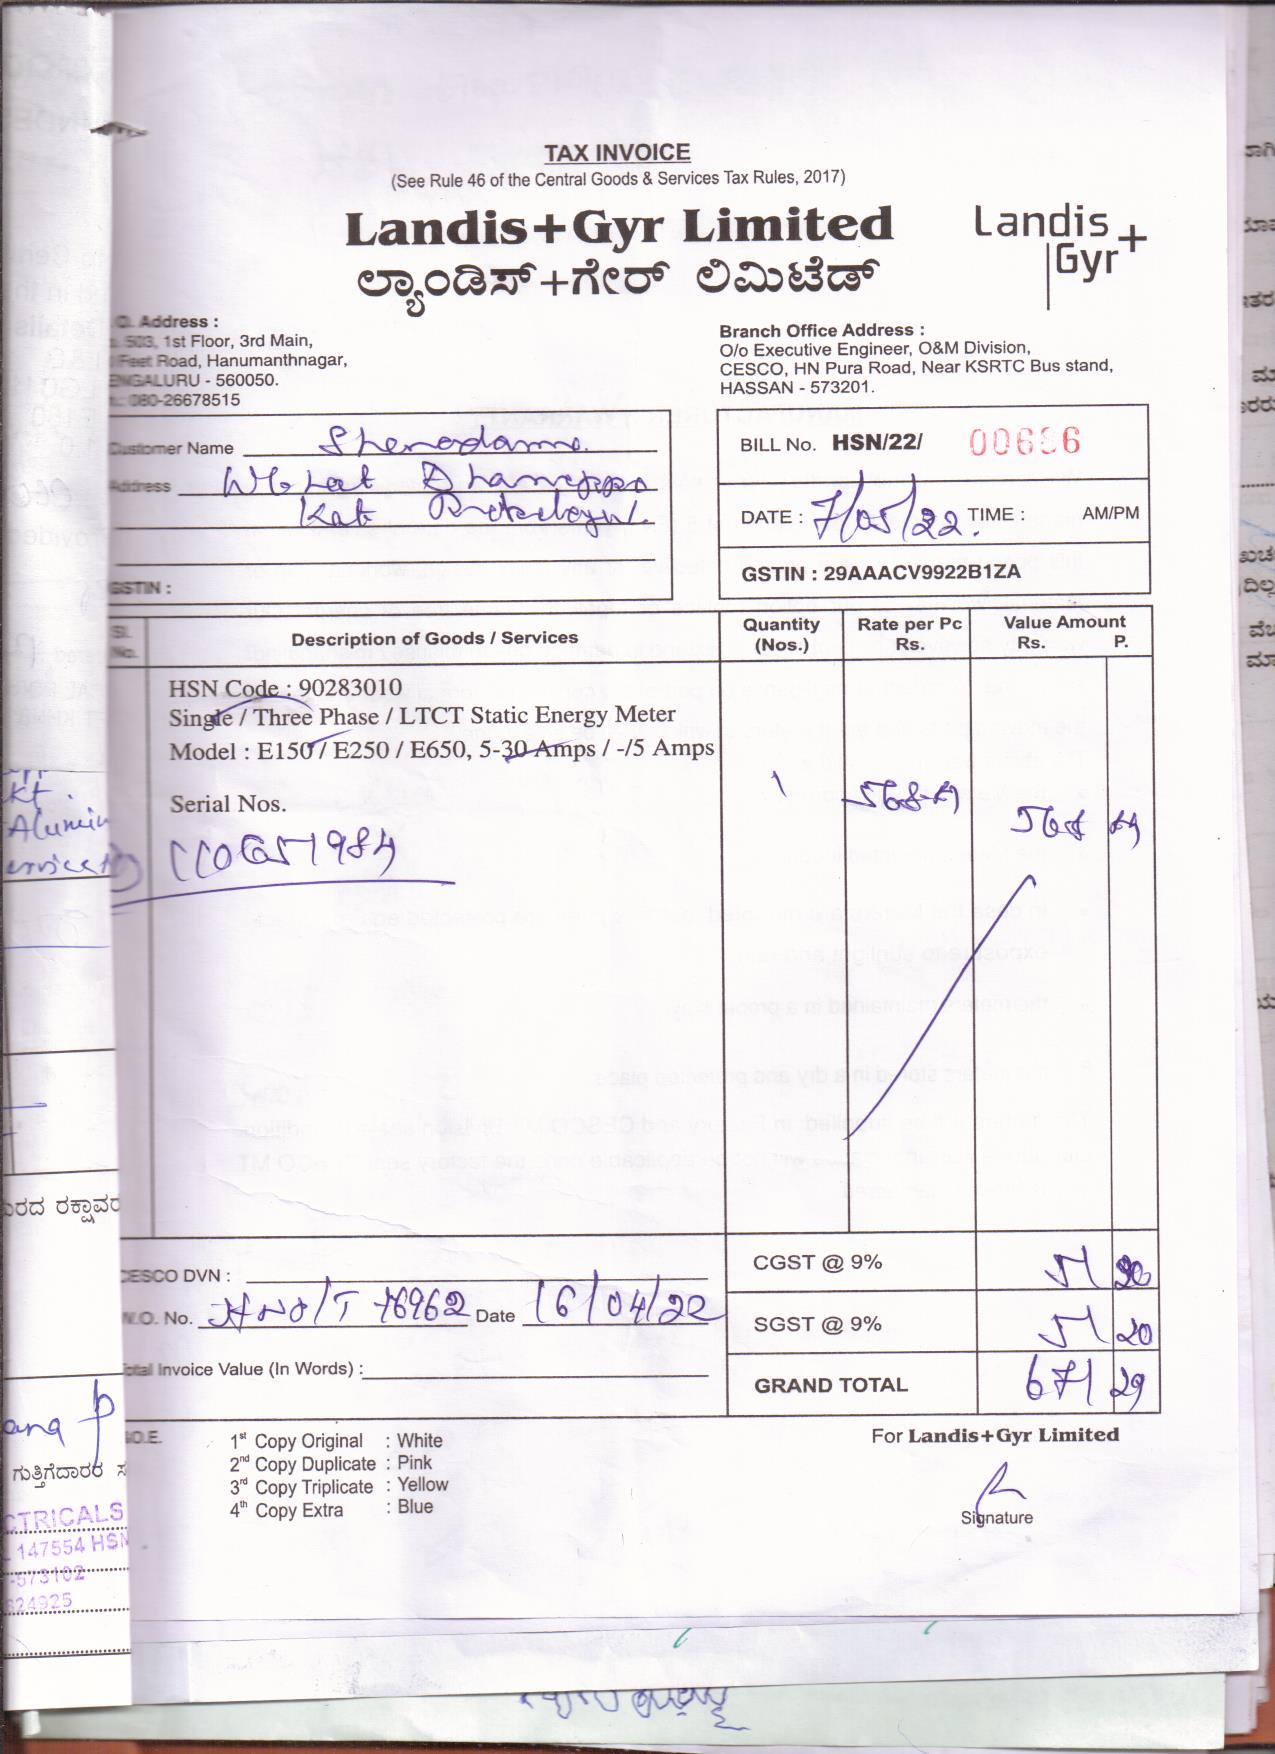 TAX INVOICE
(See Rule 46 of the Central Goods & Services Tax Rules, 2017)
Landis+Gyr Limited
ಲ್ಯಾಂಡಿಸ್+ಗೇರ್ ಲಿಮಿಟೆಡ್
Landis
Gyr+
Address :
503, 1st Floor, 3rd Main,
Feet Road, Hanumanthnagar,
BENGALURU - 560050.
080-26678515
Branch Office Address :
O/o Executive Engineer, O&M Division,
CESCO, HN Pura Road, Near KSRTC Bus stand,
HASSAN - 573201.
Customer Name
Address
GSTIN :
BILL No. HSN/22/ 00686
DATE : 7/05/22. TIME : AM/PM
GSTIN : 29AAACV9922B1ZA
Sl. No. Description of Goods / Services Quantity (Nos.) Rate per Pc Rs. Value Amount Rs. P.
HSN Code : 90283010
Single / Three Phase / LTCT Static Energy Meter
Model : E150 / E250 / E650, 5-30 Amps / -/5 Amps
1 568-89 568 89
Serial Nos.
11051984
CGST @ 9% 51 20
SGST @ 9% 51 20
GRAND TOTAL 671 29
CESCO DVN :
W.O. No. 76962 Date 16/04/22
Total Invoice Value (In Words) :
1st Copy Original : White
2nd Copy Duplicate : Pink
3rd Copy Triplicate : Yellow
4th Copy Extra : Blue
For Landis+Gyr Limited
Signature
kt.
Alumin
ಗುತ್ತಿಗೆದಾರರ ಸ
CTRICALS
147554 HSN
-573102
624925